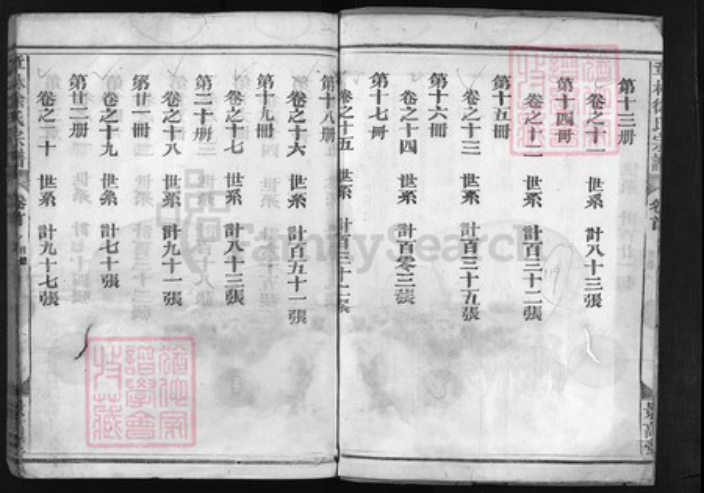 第十三册
卷之十一 世系 計八十三張
第十四冊
卷之十二 世系 計百三十二張
第十五冊
卷之十三 世系 計百三十五張
第十六冊
卷之十四 世系 計百零三張
第十七冊
卷之十五 世系 計百三十二張
第十八册
卷之十六 世系 計百五十一張
第十九冊
卷之十七 世系 計八十三張
第二十册
卷之十八 世系 計九十一張
第廿一冊
卷之十九 世系 計七十張
第廿二册
卷之二十 世系 計九十七張
章林徐氏宗譜 卷首
FamilySearch